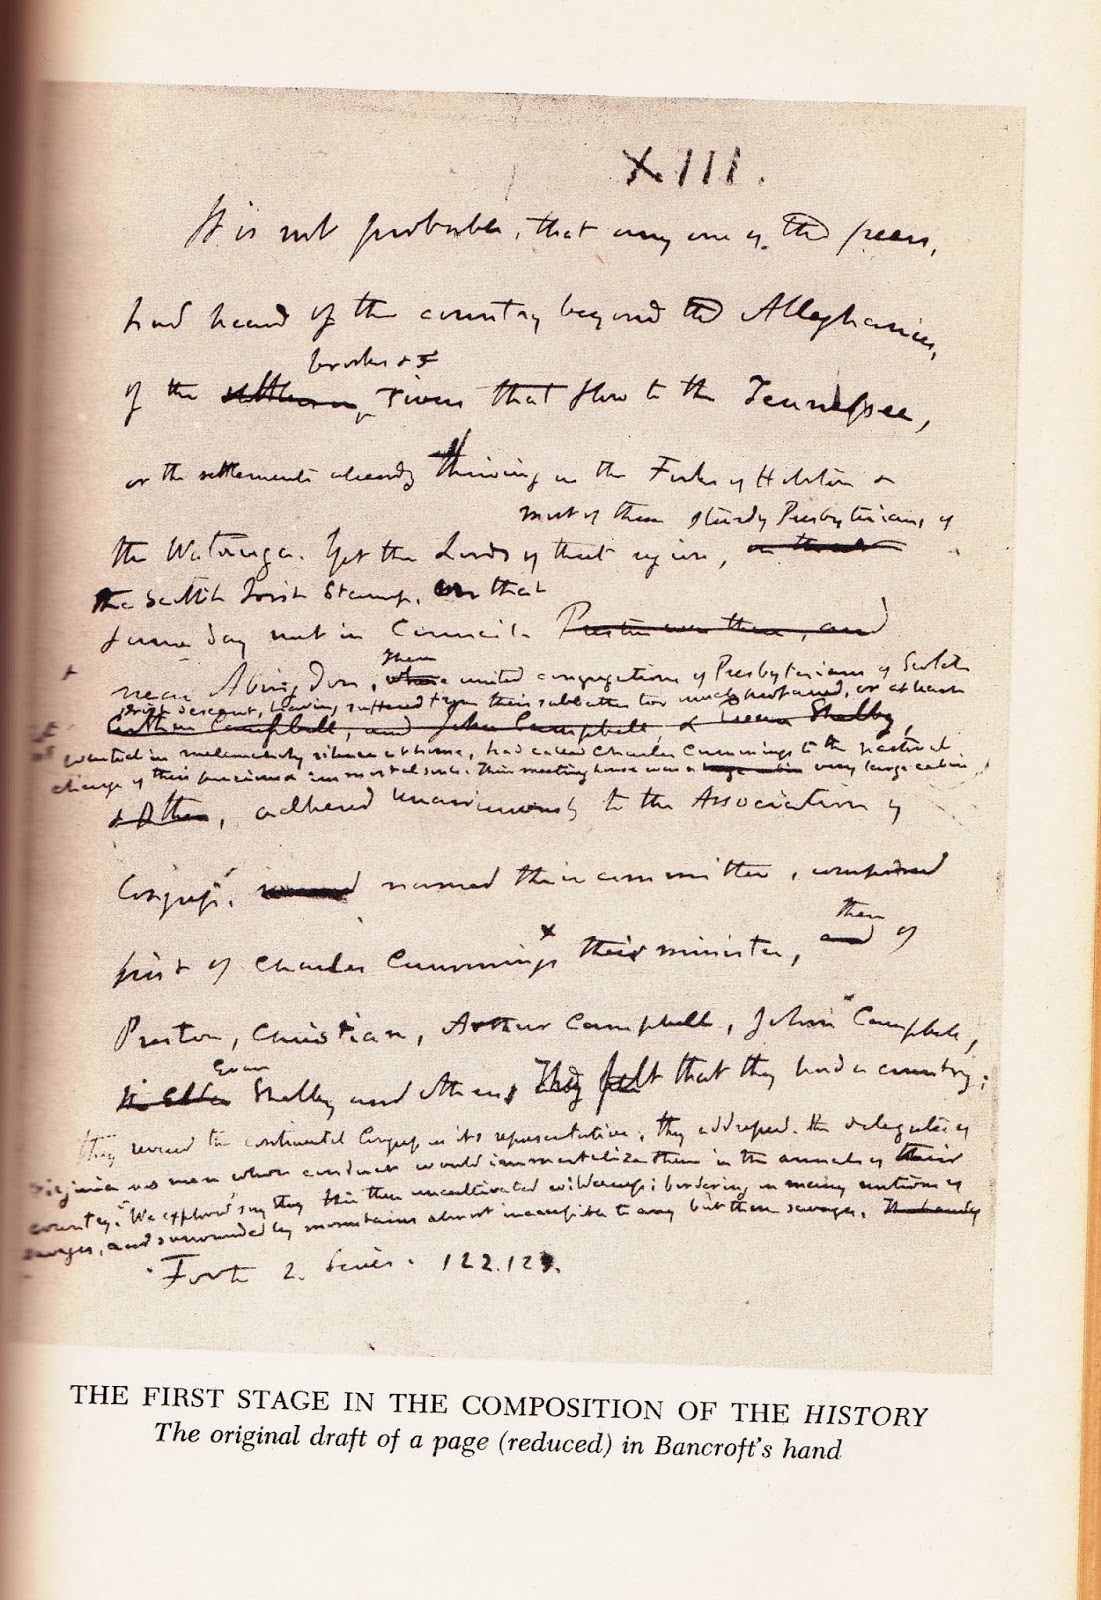 XIII.
It is not probable, that any one of the peers,
had heard of the country beyond the Alleghanies,
brooks & 
of the settlements rivers that flow to the Tennessee,
or the settlements already thriving on the Forks of Holston &
most of them sturdy Presbyterians, of
the Watauga. Yet the Lords of that region, on that
the Scottish Irish Stamp, on that
same day met in Council. Preston was there, and
Their
near Abingdon, whose united congregations of Presbyterians of Scotch
Irish descent, having suffered from their sabbaths too much profaned, or at least
Arthur Campbell, and John Campbell, & Evan Shelby,
wasted in melancholy silence at home, had called Charles Cummings to the pastoral
charge of their precious & immortal souls. Their meeting house was a very large cabin
& others, adhered unanimously to the Association of
Congress, named their committee, composed
then
first of Charles Cummings their minister, and of
Preston, Christian, Arthur Campbell, John Campbell,
Evan
Shelby and others, They felt that they had a country;
they revered the continental Congress as its representative; they addressed the delegates of
Virginia as men whose conduct would immortalize them in the annals of their
country. "We explored" say they this then uncultivated wilderness; bordering on many nations of
savages, and surrounded by mountains almost inaccessible to any but these savages.
Force 2. Series. 122.123.
THE FIRST STAGE IN THE COMPOSITION OF THE HISTORY
The original draft of a page (reduced) in Bancroft's hand